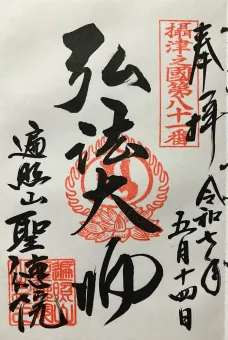 奉拝
攝津之國第八十一番
令和七年
五月十四日
弘法大師
遍照山聖徳院